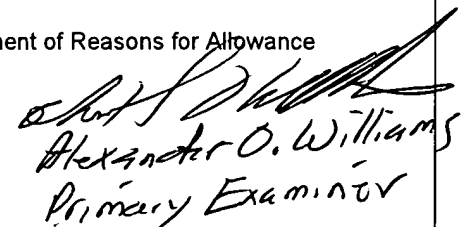 ment of Reasons for Allowance
Alexander O. Williams
Primary Examiner